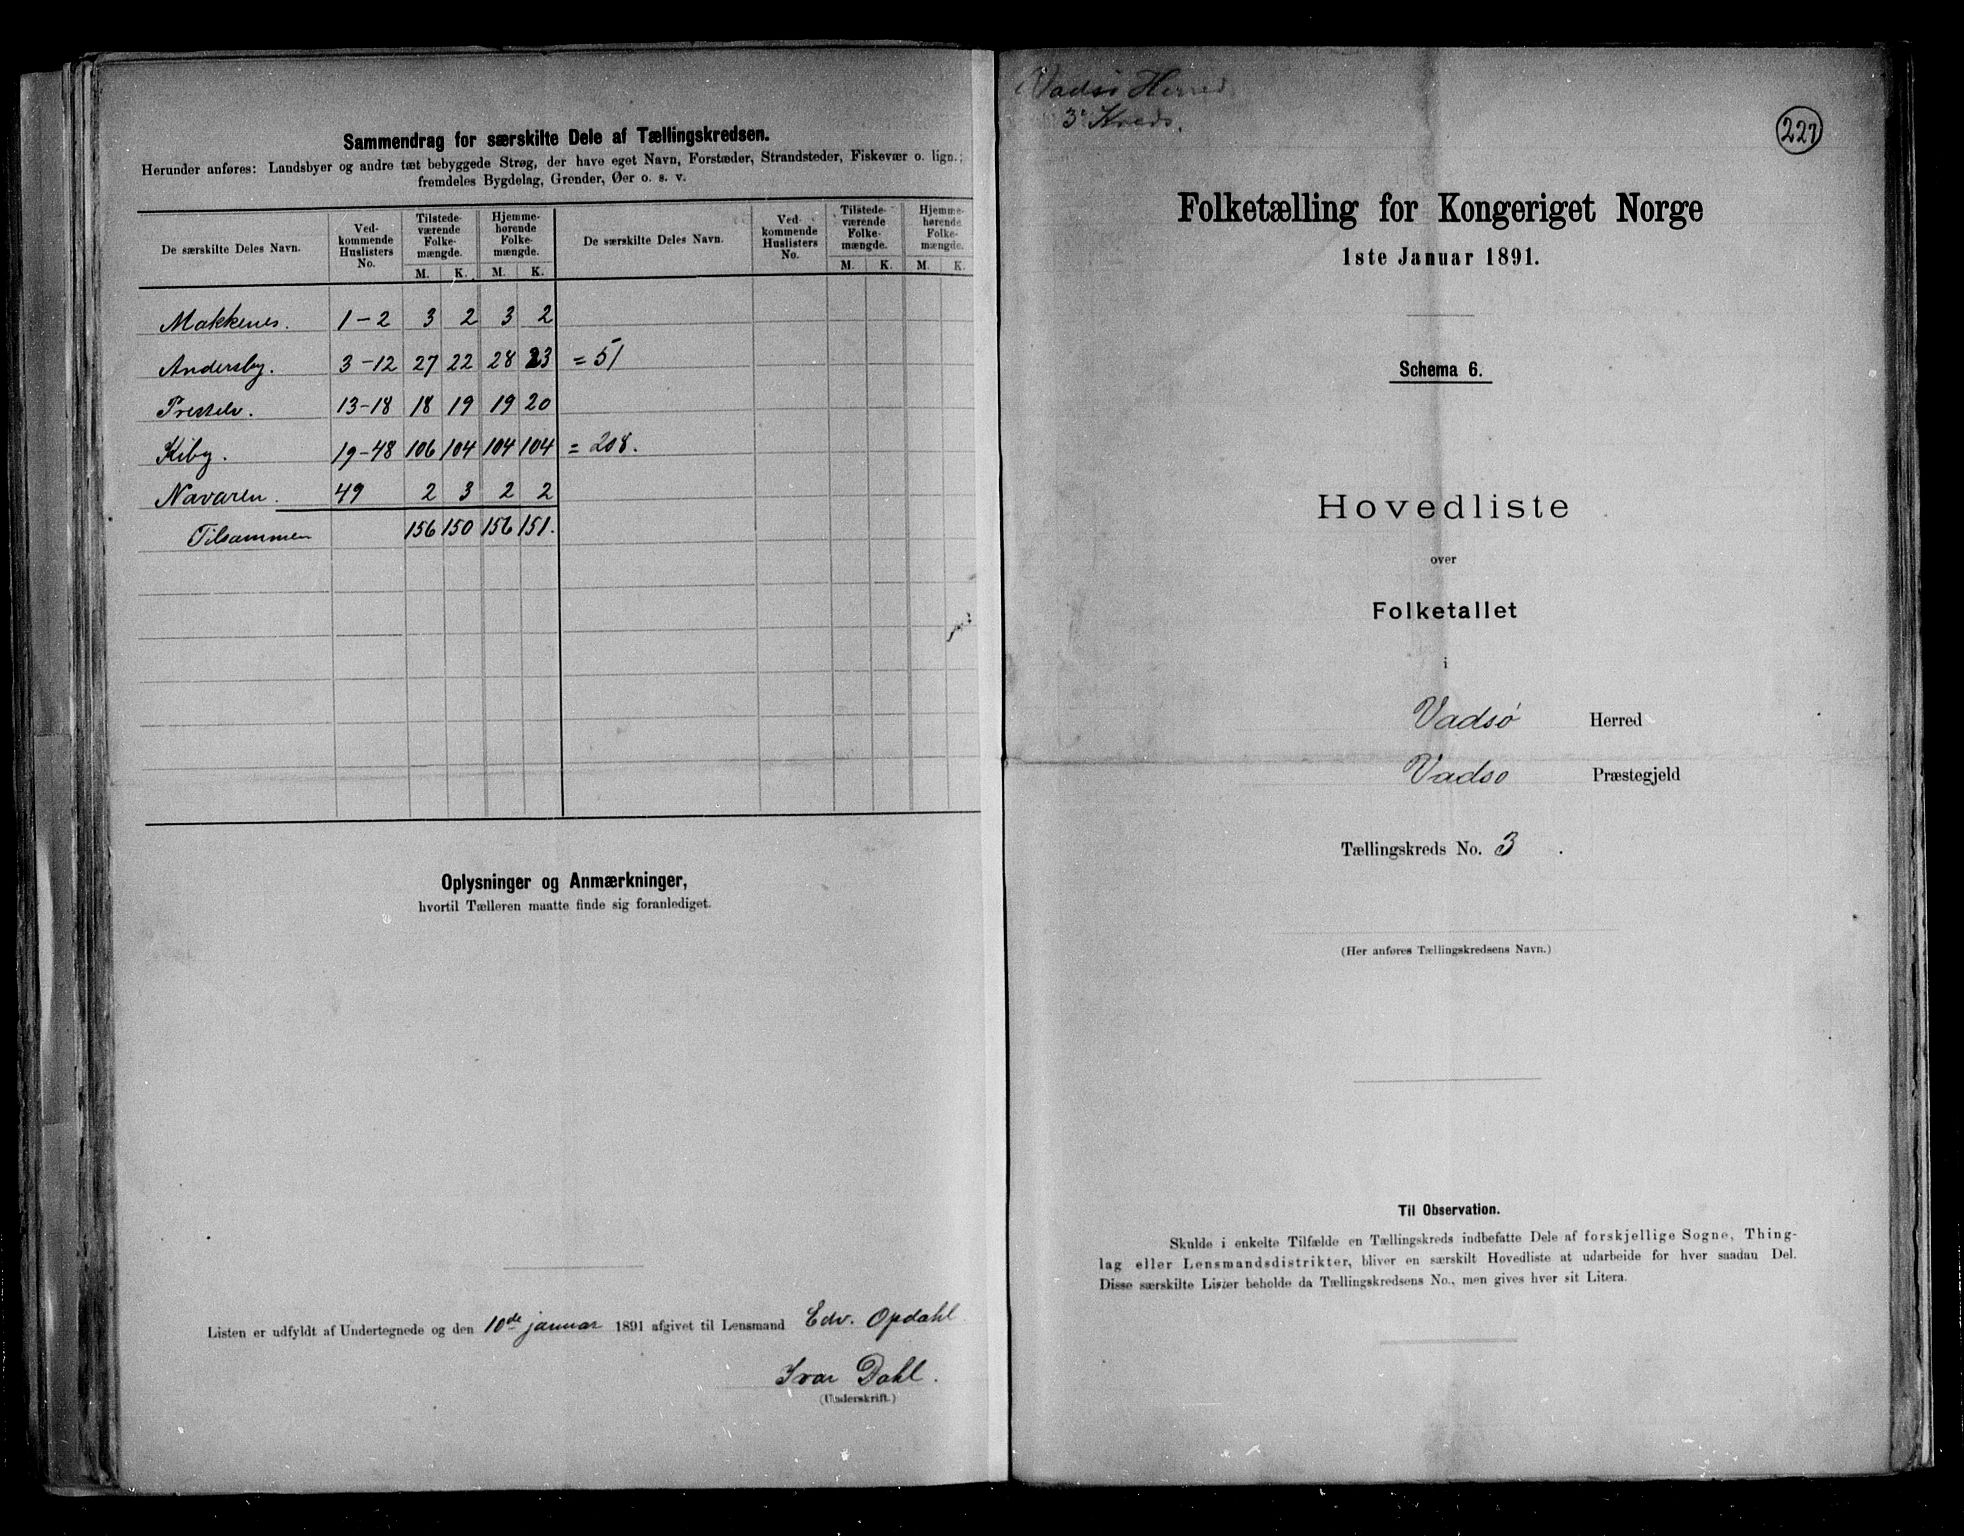 Sammendrag for særskilte Dele af Tællingskredsen.
Herunder anføres: Landsbyer og andre tæt bebyggede Strøg, der have eget Navn, Forstæder, Strandsteder, Fiskevær o. lign.;
fremdeles Bygdelag, Grender, Øer o. s. v.
De særskilte Deles Navn. Ved-kommende Huslisters No. Tilstede-værende Folke-mængde. Hjemme-hørende Folke-mængde. De særskilte Deles Navn. Ved-kommende Huslisters No. Tilstede-værende Folke-mængde. Hjemme-hørende Folke-mængde.
M. K. M. K. M. K. M. K.
Makkenes. 1-2 3 2 3 2
Andersby. 3-12 27 22 28 23 = 51
Presteelv. 13-18 18 19 19 20
Kiby. 19-48 106 104 104 104 = 208.
Navaren. 49 2 3 2 2
Tilsammen 156 150 156 151.
Oplysninger og Anmærkninger,
hvortil Tælleren maatte finde sig foranlediget.
Listen er udfyldt af Undertegnede og den 10de januar 1891 afgivet til Lensmand Edv. Opdahl
Ivar Dahl.
(Underskrift.)
Vadsø Herred
3' Kreds.
227
Folketælling for Kongeriget Norge
1ste Januar 1891.
Schema 6.
Hovedliste
over
Folketallet
i
Vadsø Herred
Vadso Præstegjeld
Tællingskreds No. 3.
(Her anføres Tællingskredsens Navn.)
Til Observation.
Skulde i enkelte Tilfælde en Tællingskreds indbefatte Dele af forskjellige Sogne, Thing-
lag eller Lensmandsdistrikter, bliver en særskilt Hovedliste at udarbeide for hver saadan Del.
Disse særskilte Lister beholde da Tællingskredsens No., men gives hver sit Litera.